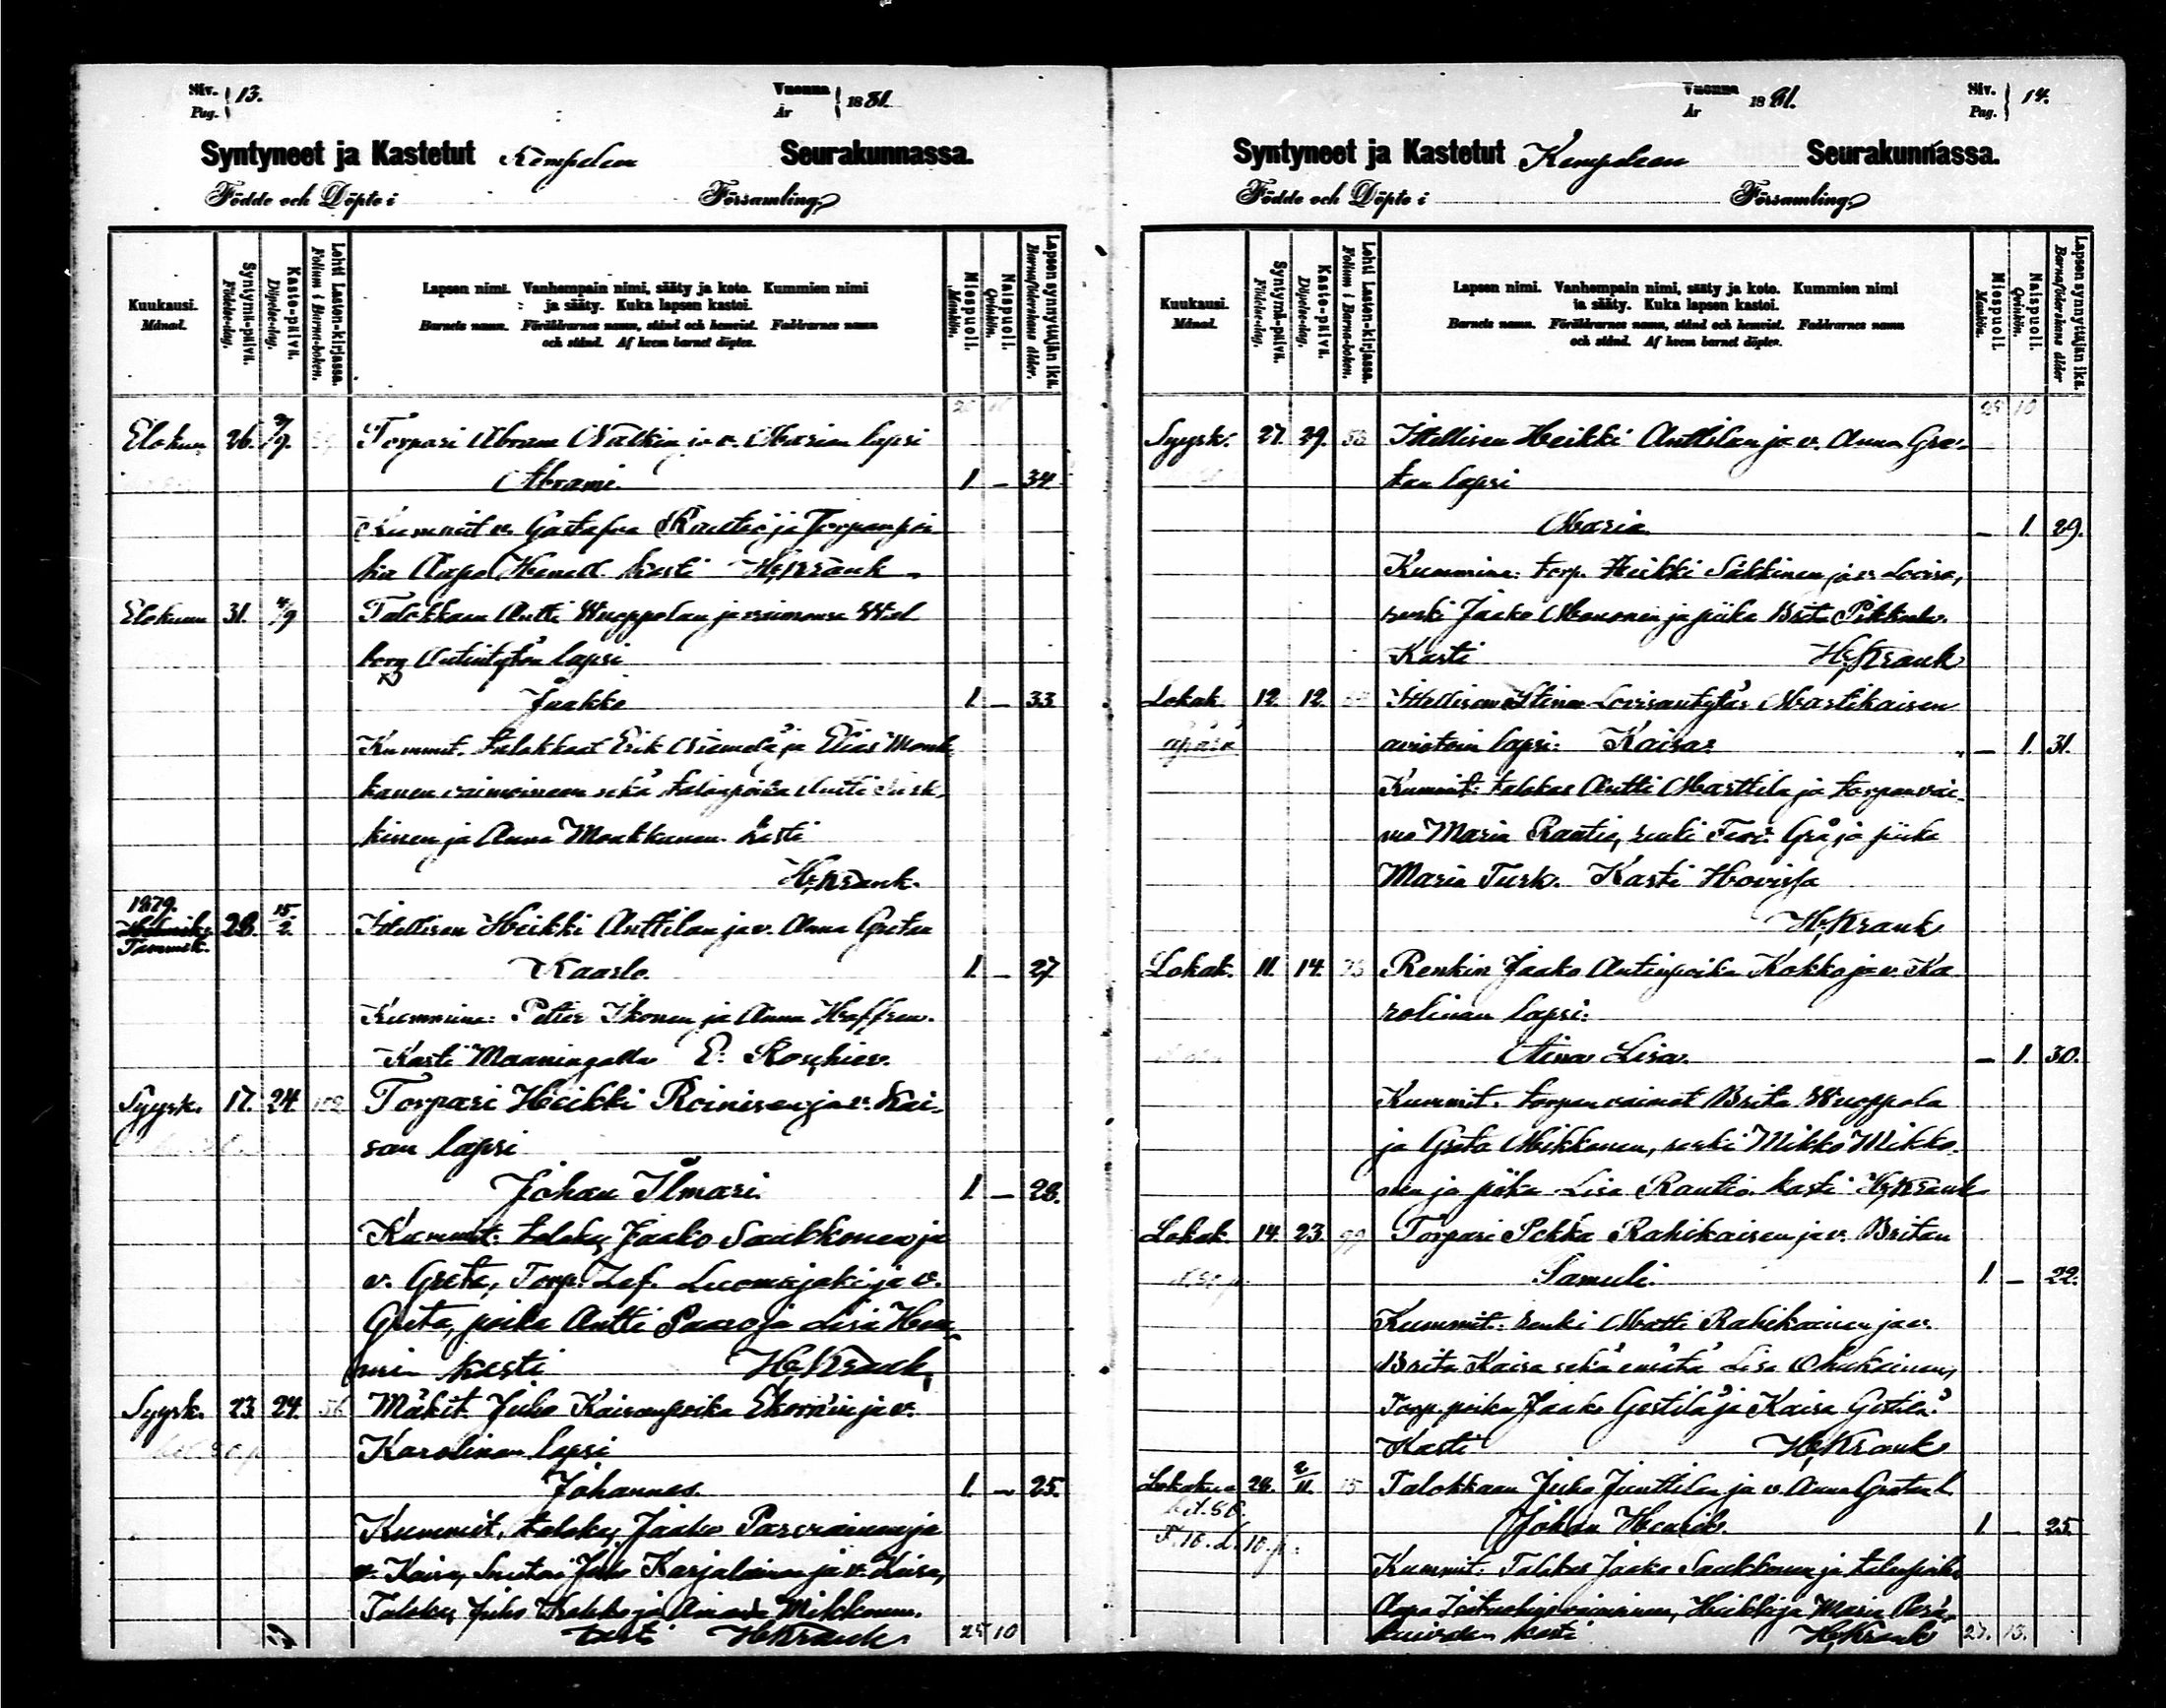 Siv. Pag. 13.
Vuonna År 1881.
Syntyneet ja Kastetut Kempeleen Seurakunnassa.
Födde och Döpte i Församling.
Kuukausi. Månad.
Syntymä-päivä. Födelse-dag.
Kaste-päivä. Döpelse-dag.
Lehti Lasten-kirjassa. Folium i Barna-boken.
Lapsen nimi. Vanhempain nimi, sääty ja koto. Kummien nimi
ja sääty. Kuka lapsen kastoi.
Barnets namn. Föräldrarnes namn, stånd och hemvist. Faddrarnes namn
och stånd. Af hvem barnet döptes.
Miespuoli. Mankön.
Naispuoli. Qvinkön.
Lapsen synnyttäjän ikä. Barnaföderskans ålder.
Elokuu 26. Torpari Abram ja v. Marian lapsi
Abrami. 1 — 34
Kummit v. Gustafva Rautio ja Torpanpoi
ka Aapo kasti H. Krank
Elokuu 31. 4/9 Talokkaan Antti Wuoppolan ja vaimonsa Wal
borg Antintytön lapsi
Jaakko 1 — 33
Kummit. talokkaat Erik Niemelä ja Elias Monk
kanen vaimoineen sekä talonpoika Antti
kinen ja Anna Monkkanen. kasti
H. Krank.
1879.
Helmik.
Tammik. 28. 15/2. Itellisen Heikki Anttilan ja v. Anna Gretan
Kaarlo. 1 — 27
Kummina: Petter Ikonen ja Anna
Kasti Maaningalla E. Roschier.
Syysk. 17. 24. 102 Torpari Heikki Roinisen ja v. Kai-
san lapsi
Johan Ilmari. 1 — 28.
Kummit: talokas Jaako Saukkonen ja
v. Greta, Torp. Zef. Luomajoki ja v.
Greta, poika Antti Paaso ja Lisa Hem
min kasti H. Krank
Syysk. 23. 24. 56 Mäkit. Juho Kaisanpoika Ekorrin ja v.
Karolinan lapsi
Johannes. 1 — 25.
Kummit, talokas Jaako Parviainen ja
v. Kaisa, Juho Karjalainen ja v. Kaisa,
Talokas Juho ja Mikkonen.
kasti H. Krank 25 10
Vuonna År 1881.
Siv. Pag. 14.
Syntyneet ja Kastetut Kempeleen Seurakunnassa.
Födde och Döpte i Församling.
Kuukausi. Månad.
Syntymä-päivä. Födelse-dag.
Kaste-päivä. Döpelse-dag.
Lehti Lasten-kirjassa. Folium i Barna-boken.
Lapsen nimi. Vanhempain nimi, sääty ja koto. Kummien nimi
ja sääty. Kuka lapsen kastoi.
Barnets namn. Föräldrarnes namn, stånd och hemvist. Faddrarnes namn
och stånd. Af hvem barnet döptes.
Miespuoli. Mankön.
Naispuoli. Qvinkön.
Lapsen synnyttäjän ikä. Barnaföderskans ålder
25 10
Syysk. 27. 29. 53 Itellisen Heikki Anttilan ja v. Anna Gre-
tan lapsi
Maria — 1. 29.
Kummina: torp. Heikki Säkkinen ja v. Lovisa,
renki Jaako Mononen ja piika Brita
Kasti H. Krank
Lokak. 12. 12. Itellisen Stina Lovisantytär Martikaisen
apärä aviotoin lapsi: Kaisa — 1. 31.
Kummit: talokas Antti Marttila ja torpanvai-
mo Maria Rautio, renki Grå ja piika
Maria Turk. Kasti Hovissa
H. Krank
Lokak. 11. 14. 73 Renkin Jaako Antinpoika Kokko ja v. Ka
rolinan lapsi:
Aina Lisa — 1. 30.
Kummit. torpan vaimot Brita Wuoppola
ja Greta Mikkonen, renki Mikko Mikko-
nen ja piika Lisa Rautio. kasti H. Krank
Lokak. 14. 23. 99 Torpari Pekka Rahikaisen ja v. Britan
Samuli. 1. — 22.
Kummit: renki Matti Rahikainen ja v.
Brita Kaisa sekä emäntä Lisa
Torp. poika Jaako Gestilä ja Kaisa Gestilä
Kasti H. Krank
Lokakuu 28. 2/11. 15 Talokkaan Juho Junttilan ja v. Anna Gretan l.
Johan Henrik. 1 — 25
Kummit: Talokas Jaako Saukkonen ja talonpoika
Aapo vaimoineen, Heikki ja Maria
kasti H. Krank 27. 13.